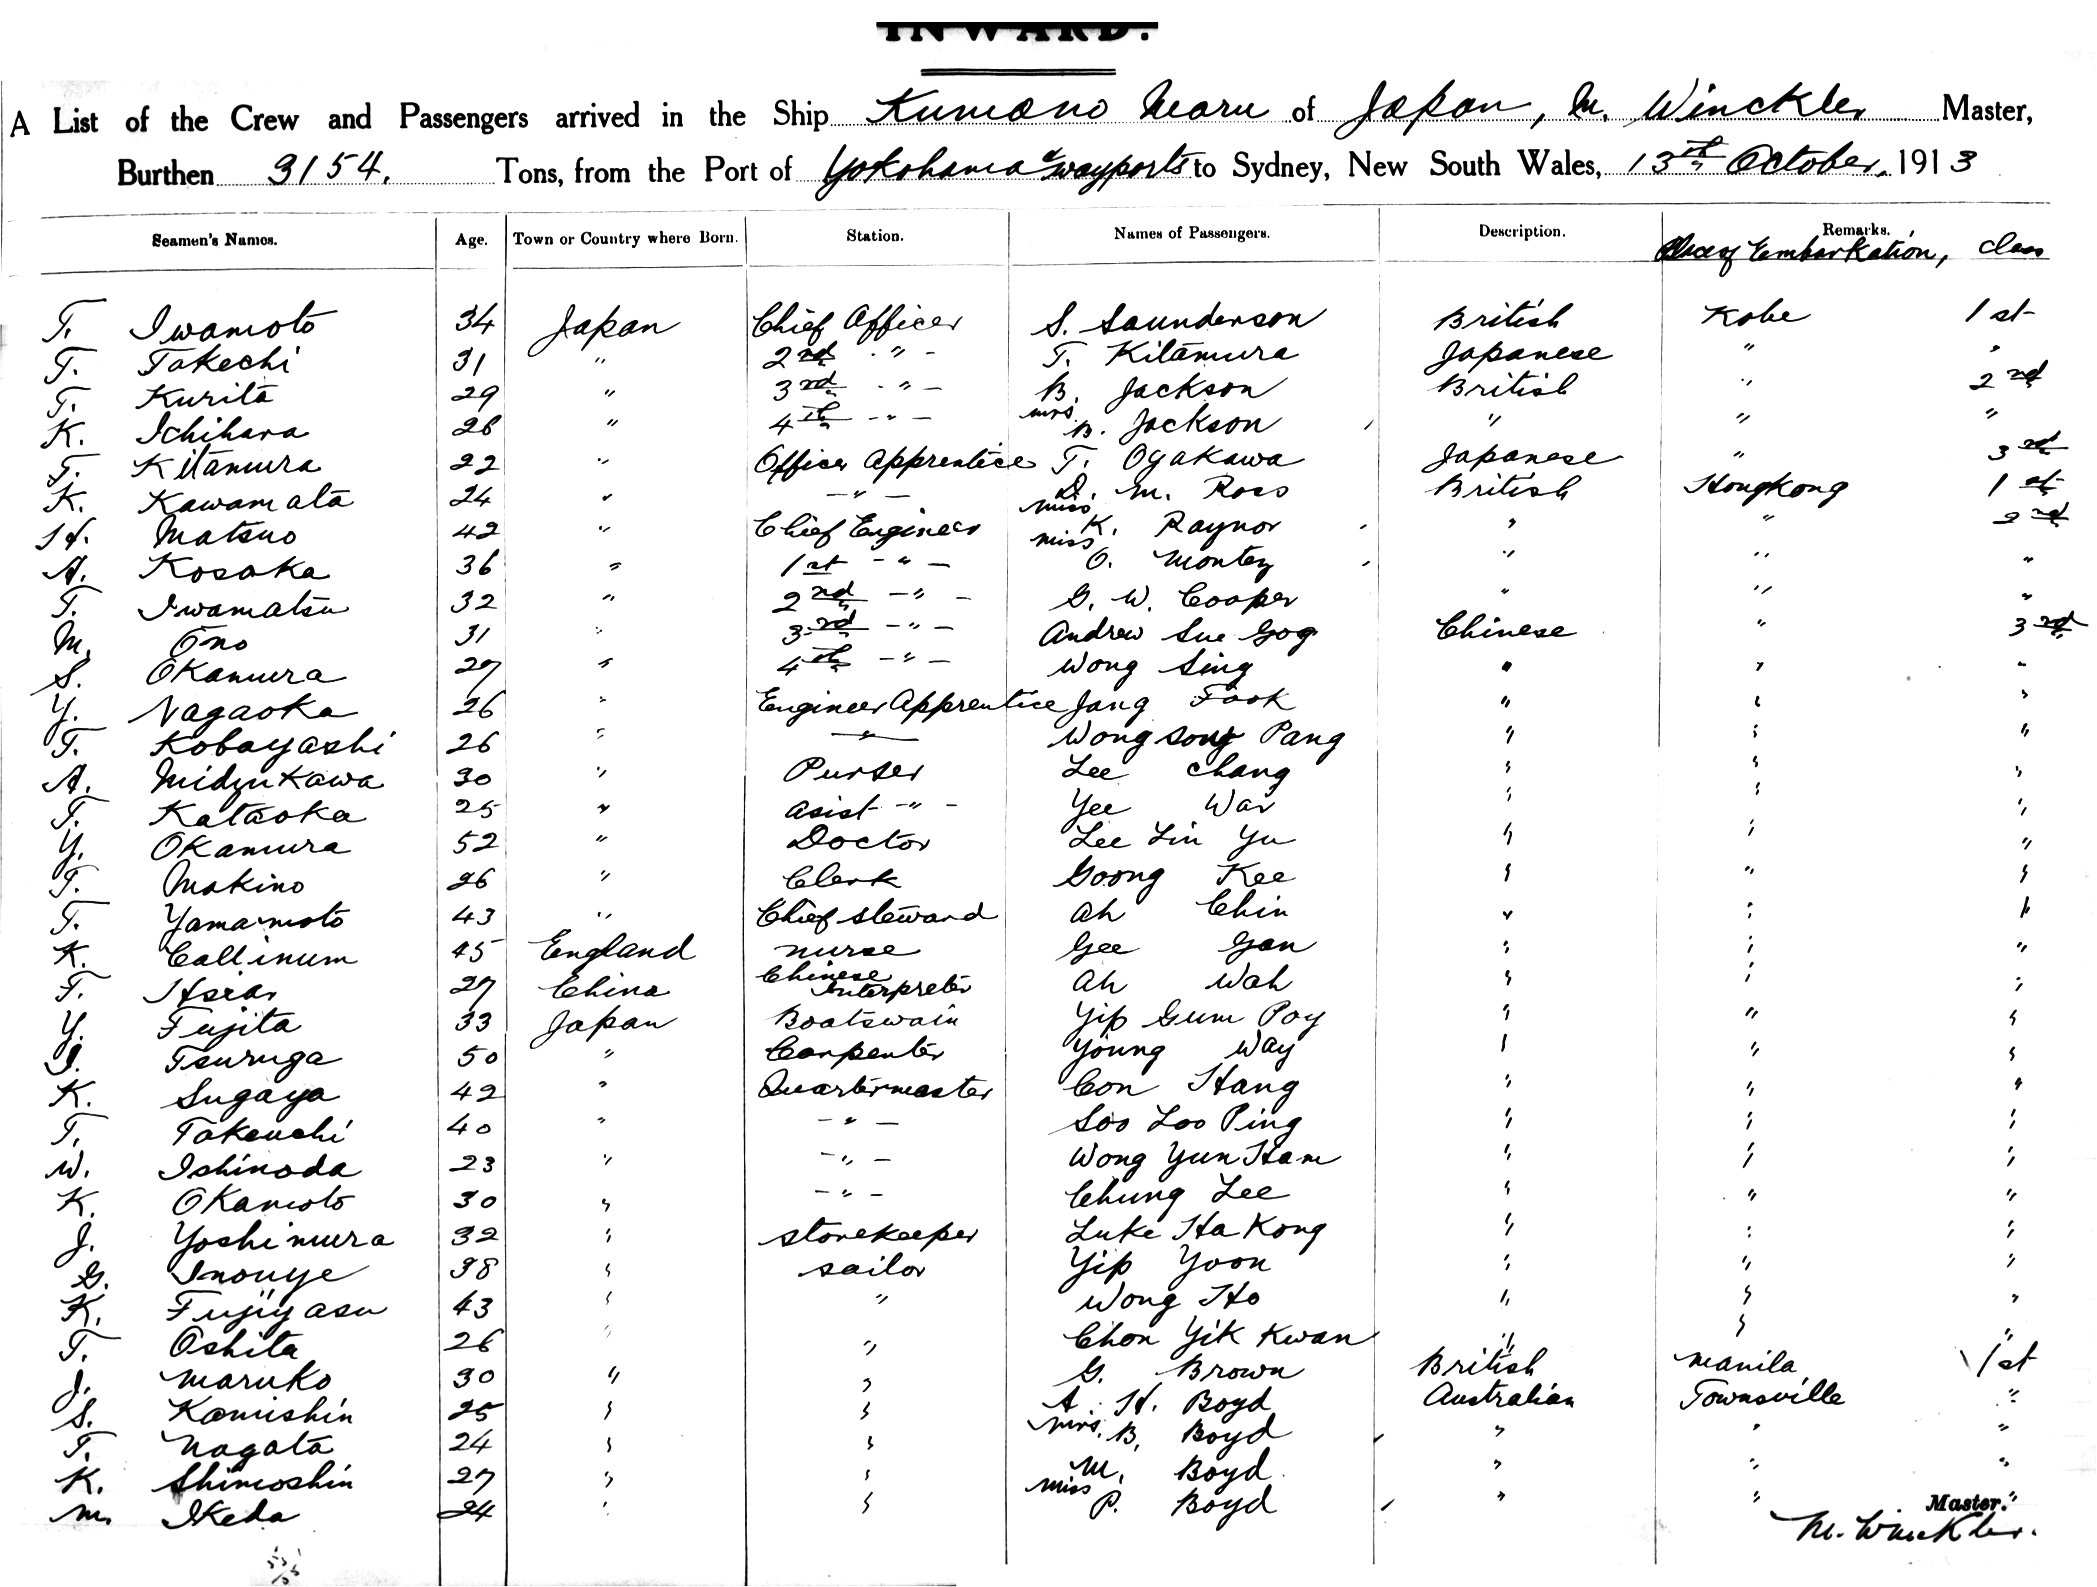 INWARD.
A List of the Crew and Passengers arrived in the Ship Kumano Maru of Japan, M. Winckler Master,
Burthen 3154. Tons, from the Port of Yokohama & wayports to Sydney, New South Wales, 13th October, 1913
Seamen's Names. Age. Town or Country where Born. Station. Names of Passengers. Description. Remarks.
Place of Embarkation, Class
T. Iwamoto 34 Japan Chief Officer S. Saunderson British Kobe 1st
T. Takechi 31 " 2nd " T. Kitamura Japanese " "
T. Kurita 29 " 3rd " B. Jackson British " 2nd
K. Ichihara 26 " 4th " Mrs B. Jackson " " "
T. Kitamura 22 " Officer Apprentice T. Ogakawa Japanese " 3rd
K. Kawamata 24 " " D. M. Ross British Hongkong 1st
H. Matsuo 42 " Chief Engineer Miss K. Raynor " " 2nd
A. Kosaka 36 " 1st " Miss O. Montez " " "
T. Iwamatsu 32 " 2nd " G. W. Cooper " " "
M. Ono 31 " 3rd " Andrew Sue Gog Chinese " 3rd
S. Okamura 27 " 4th " Wong Sing " " "
Y. Nagaoka 26 " Engineer Apprentice Jang Fook " " "
T. Kobayashi 26 " " Wong Song Pang " " "
A. Midzukawa 30 " Purser Lee Chang " " "
T. Kataoka 25 " Asist " Yee War " " "
Y. Okamura 52 " Doctor Lee Lin Yu " " "
T. Makino 26 " Clerk Goong Kee " " "
T. Yamamoto 43 " Chief Steward Ah Chin " " "
K. Callinum 45 England Nurse Gee Gan " " "
T. 27 China Chinese Interpreter Ah Wah " " "
Y. Fujita 33 Japan Boatswain Yip Gum Poy " " "
Tsuruga 50 " Carpenter Young Way " " "
K. Sugaya 42 " Quartermaster Con Hang " " "
T. Takeuchi 40 " " Soo Loo Ping " " "
W. Ishinoda 23 " " Wong Yun Ham " " "
K. Okamoto 30 " " Chung Lee " " "
J. Yoshimura 32 " Storekeeper Luke Ha Kong " " "
G. Inouye 38 " Sailor Yip Yoon " " "
K. Fujiyasu 43 " " Wong Ho " " "
T. Oshita 26 " " Chon Yik Kwan " " "
J. Maruko 30 " " G. Brown British Manila 1st
S. Kamishin 25 " " A. H. Boyd Australian Townsville "
T. Nagata 24 " " Mrs. B. Boyd " " "
K. Shimoshin 27 " " M. Boyd " " "
M. Ikeda 24 " " Miss P. Boyd " " "
Master.
M. Winckler.